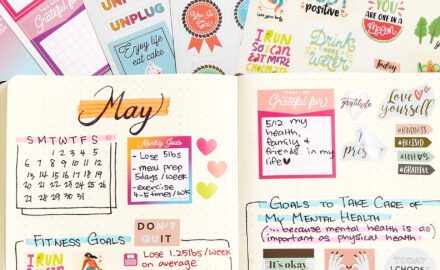 UNPLUG
UNPLUG
Enjoy life
eat cake
You Go
Girl!
Grateful for
positive
I RUN
SO I CAN
EAT MORE
CHOCOLATE
Drink
more
Water
YOU ARE
ONE IN A
Melon
Today
May
S M T W T F S
1 2 3 4 5
6 7 8 9 10 11 12
13 14 15 16 17 18 19
20 21 22 23 24 25 26
27
Monthly Goals
- Lose 5lbs
- meal prep
5days/week
- exercise
4-5 times/wk
DON'T
QUIT
FITNESS GOALS
I RUN
SO I CAN
Lose 1.25lbs/week
on average
Grateful for
5/12 my
health,
family &
friends in my
life
gratitude
Love
yourself
#KINDNESS
#BLESSED
#LOVE
#GRATEFUL
GOALS TO TAKE CARE OF
MY MENTAL HEALTH
(...because mental health is as
important as physical health)
It's okay
TODAY
I CHOOSE